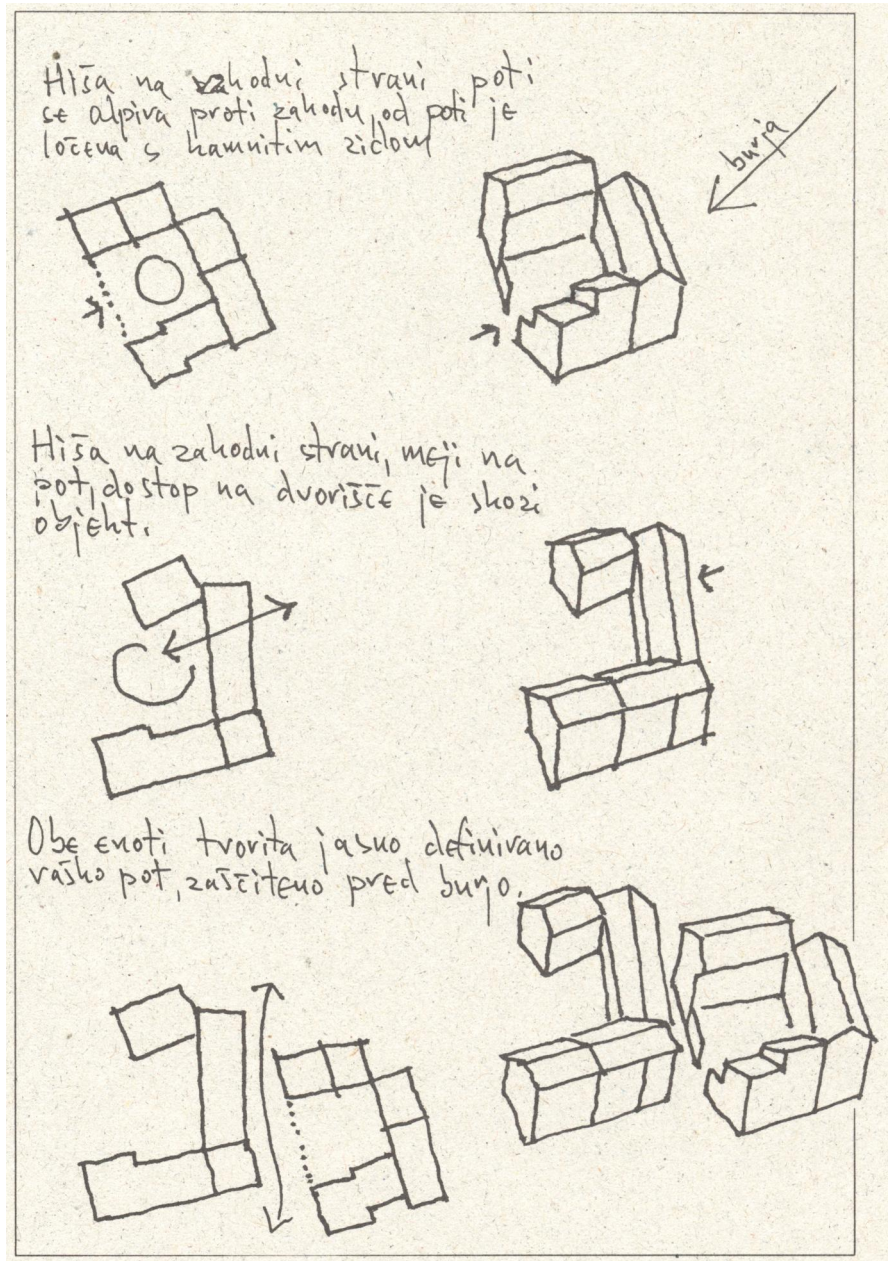 Hiša na vzhodni strani poti
se odpira proti zahodu, od poti je
ločena s kamnitim zidom
burja
Hiša na zahodni strani, meji na
pot, dostop na dvorišče je skozi
objekt.
Obe enoti tvorita jasno definirano
vaško pot, zaščiteno pred burjo.